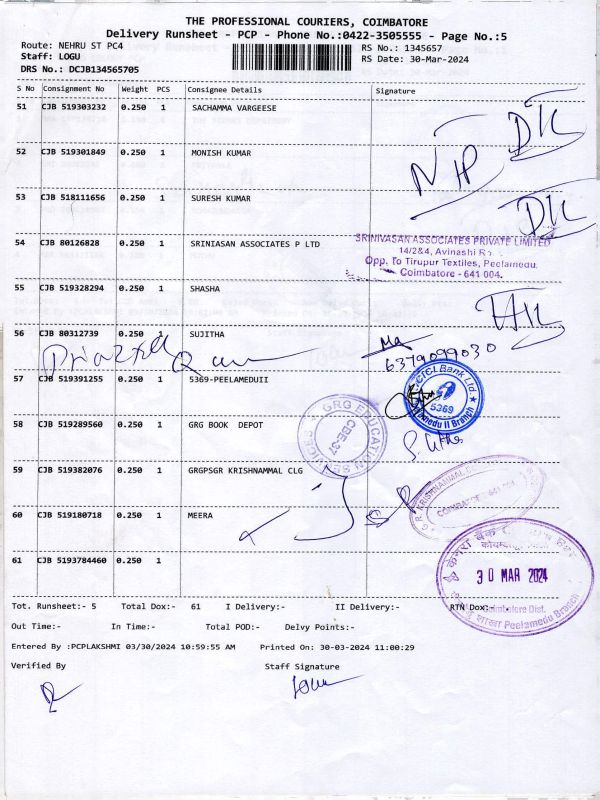 THE PROFESSIONAL COURIERS, COIMBATORE
Delivery Runsheet - PCP - Phone No.:0422-3505555 - Page No.:5
Route: NEHRU ST PC4
RS No.: 1345657
Staff: LOGU
RS Date: 30-Mar-2024
DRS No.: DCJB134565705
S No Consignment No Weight PCS Consignee Details Signature
51 CJB 519303232 0.250 1 SACHAMMA VARGEESE
52 CJB 519301849 0.250 1 MONISH KUMAR
53 CJB 518111656 0.250 1 SURESH KUMAR
54 CJB 80126828 0.250 1 SRINIASAN ASSOCIATES P LTD
SRINIVASAN ASSOCIATES PRIVATE LIMITED
14/2&4, Avinashi
Opp. To Tirupur Textiles, Peelamedu,
Coimbatore - 641 004.
55 CJB 519328294 0.250 1 SHASHA
56 CJB 80312739 0.250 1 SUJITHA
6379099030
57 CJB 519391255 0.250 1 5369-PEELAMEDUII
ICICI Bank Ltd
5369
Peelamedu II Branch
58 CJB 519289560 0.250 1 GRG BOOK DEPOT
GRG EDUCATION
CBE-37
59 CJB 519382076 0.250 1 GRGPSGR KRISHNAMMAL CLG
G.R. KRISHNAMMAL
COIMBATORE - 641 004
60 CJB 519180718 0.250 1 MEERA
61 CJB 5193784460 0.250 1
केनरा बैंक
30 MAR 2024
Coimbatore Dist.
शाखा Peelamedu Branch
Tot. Runsheet:- 5 Total Dox:- 61 I Delivery:- II Delivery:- RTN Dox:-
Out Time:- In Time:- Total POD:- Delvy Points:-
Entered By :PCPLAKSHMI 03/30/2024 10:59:55 AM Printed On: 30-03-2024 11:00:29
Verified By Staff Signature